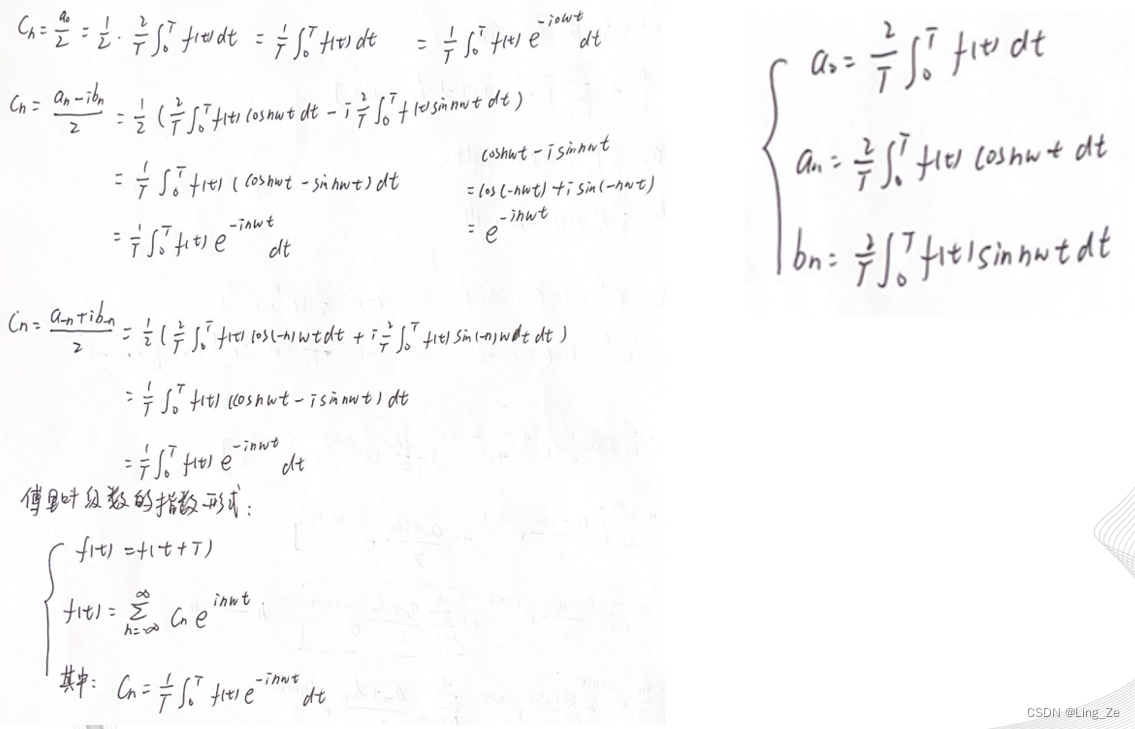 Cn = a₀/2 = 1/2 · 2/T ∫₀ᵀ f(t) dt = 1/T ∫₀ᵀ f(t) dt = 1/T ∫₀ᵀ f(t) e^(-i0wt) dt
Cn = (an - ibn)/2 = 1/2 ( 2/T ∫₀ᵀ f(t) cosnwt dt - i 2/T ∫₀ᵀ f(t) sinnwt dt )
= 1/T ∫₀ᵀ f(t) (cosnwt - sinnwt) dt
= 1/T ∫₀ᵀ f(t) e^(-inwt) dt
cosnwt - isinnwt
= cos(-nwt) + i sin(-nwt)
= e^(-inwt)
Cn = (a-n + ib-n)/2 = 1/2 ( 2/T ∫₀ᵀ f(t) cos(-n)wt dt + i 2/T ∫₀ᵀ f(t) sin(-n)wt dt )
= 1/T ∫₀ᵀ f(t) (cosnwt - isinnwt) dt
= 1/T ∫₀ᵀ f(t) e^(-inwt) dt
傅里叶级数的指数形式:
f(t) = f(t+T)
f(t) = ∑_(n=-∞)^∞ Cn e^(inwt)
其中: Cn = 1/T ∫₀ᵀ f(t) e^(-inwt) dt
a₀ = 2/T ∫₀ᵀ f(t) dt
an = 2/T ∫₀ᵀ f(t) cosnwt dt
bn = 2/T ∫₀ᵀ f(t) sinnwt dt
CSDN @Ling_Ze